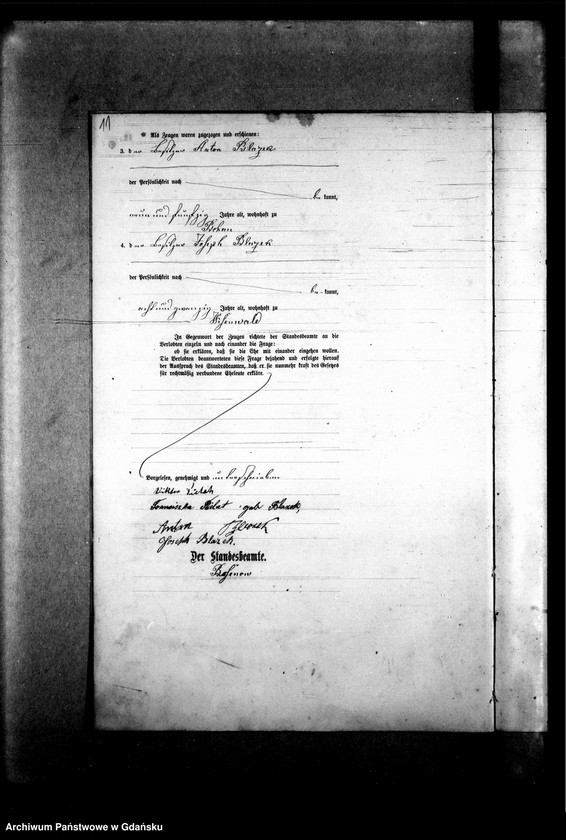 11
Als Zeugen waren zugezogen und erschienen:
3. der Besitzer Anton Blazek
der Persönlichkeit nach
be kannt,
neun und fünfzig Jahre alt, wohnhaft zu
4. der Besitzer Joseph Blazek
der Persönlichkeit nach
be kannt,
acht und zwanzig Jahre alt, wohnhaft zu
In Gegenwart der Zeugen richtete der Standesbeamte an die
Verlobten einzeln und nach einander die Frage:
ob sie erklären, daß sie die Ehe mit einander eingehen wollen.
Die Verlobten beantworteten diese Frage bejahend und erfolgte hierauf
der Ausspruch des Standesbeamten, daß er sie nunmehr kraft des Gesetzes
für rechtmäßig verbundene Eheleute erkläre.
Vorgelesen, genehmigt und unterschrieben
Viktor
Franciszka geb Blazek,
Joseph Blazek.
Der Standesbeamte.
Archiwum Państwowe w Gdańsku